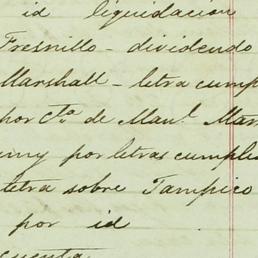 id liquidacion
Fresnillo - dividendo
Marshall - letra cump
por cta. de Manl. Man
por letras cumpli
letra sobre Tampico
por id
cuenta.